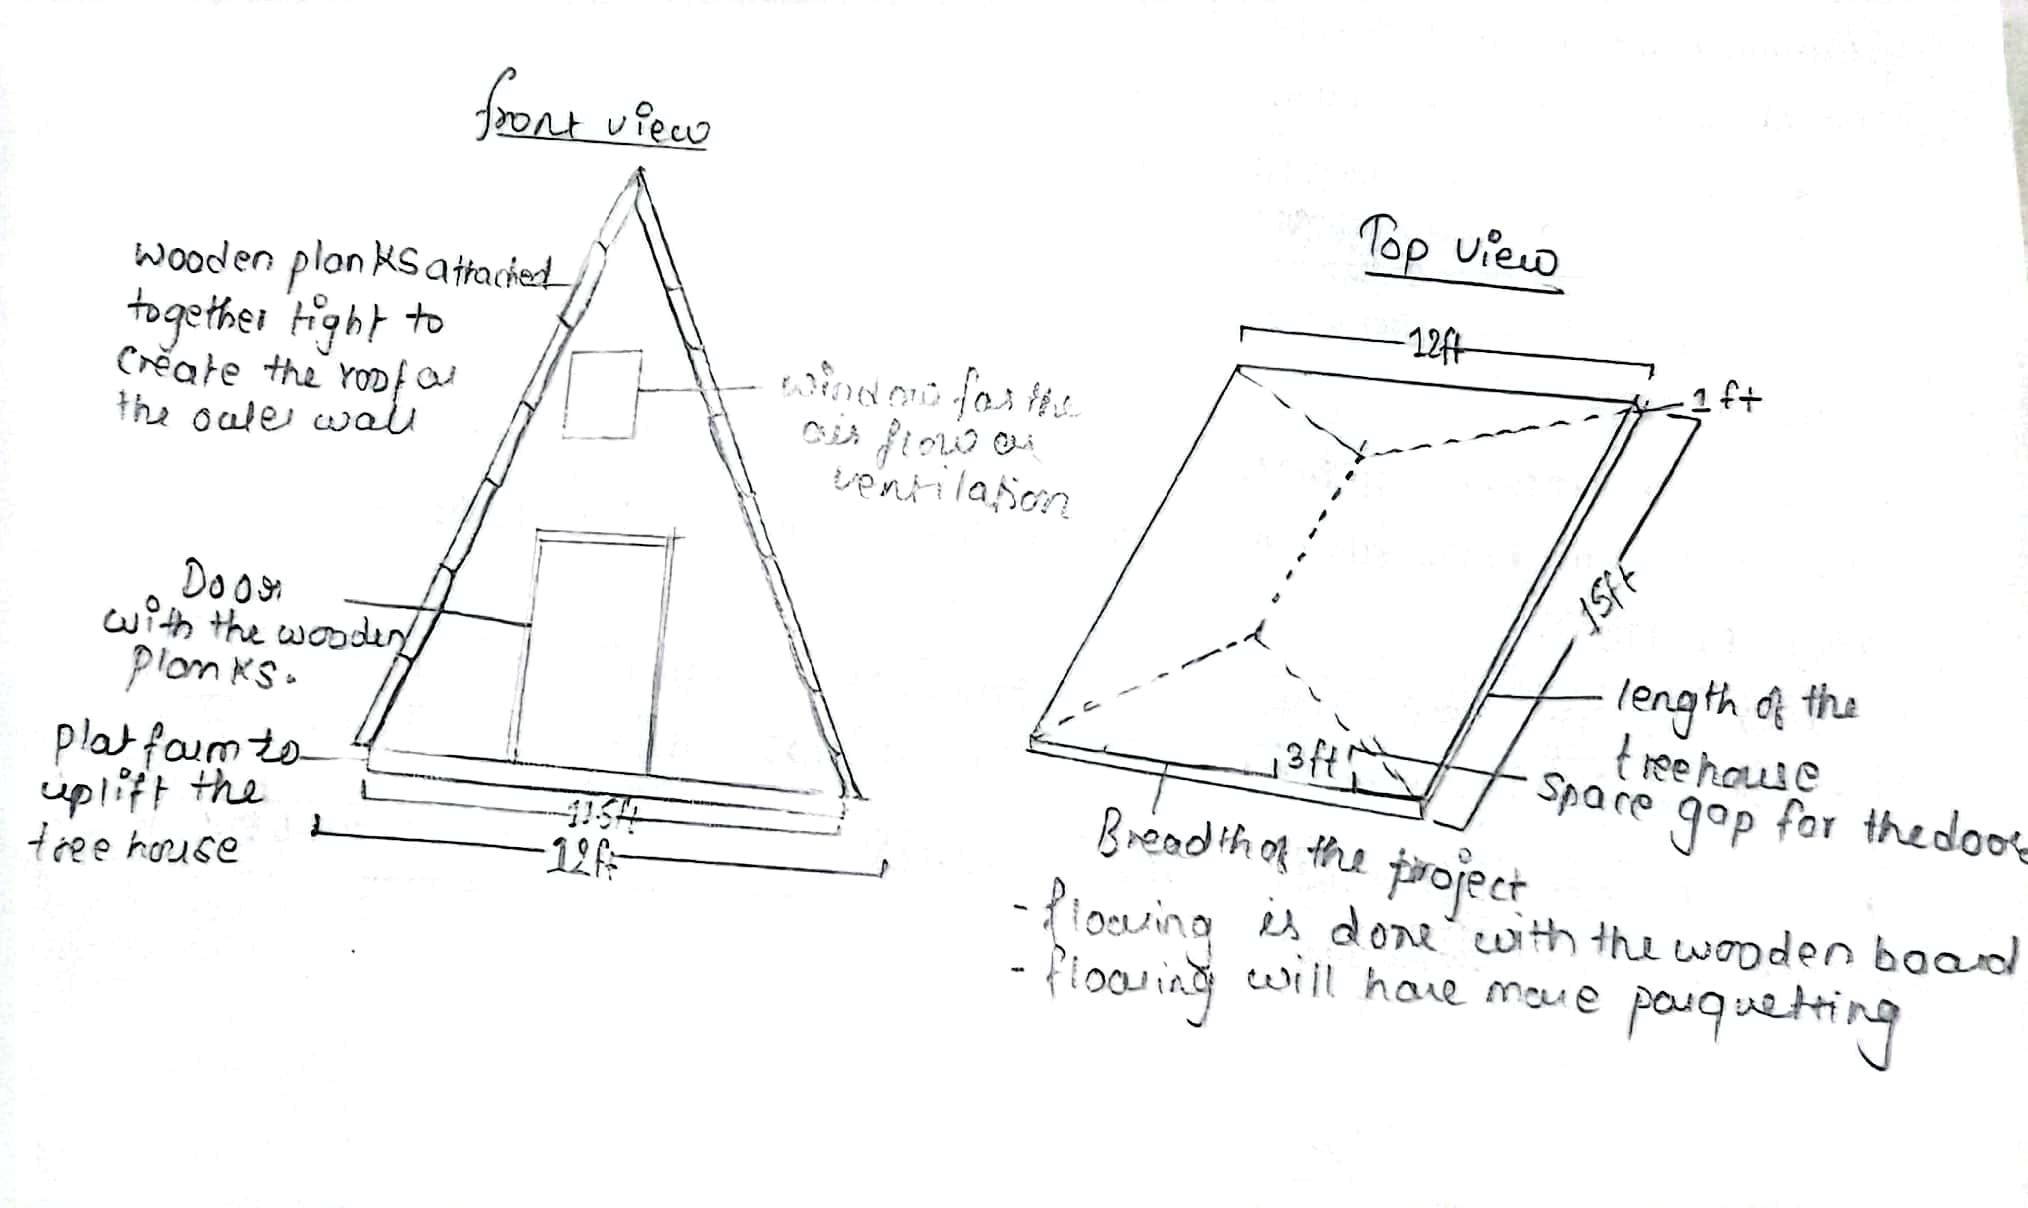 front view
wooden planks attached
together tight to
create the roof or
the outer wall
window for the
air flow or
ventilation
Door
with the wooden
planks.
platform to
uplift the
tree house
11.5ft
12ft
Top view
12ft
1 ft
15ft
length of the
treehouse
3ft
space gap for the door
Breadth of the project
- flooring is done with the wooden board
- flooring will have more parquetting